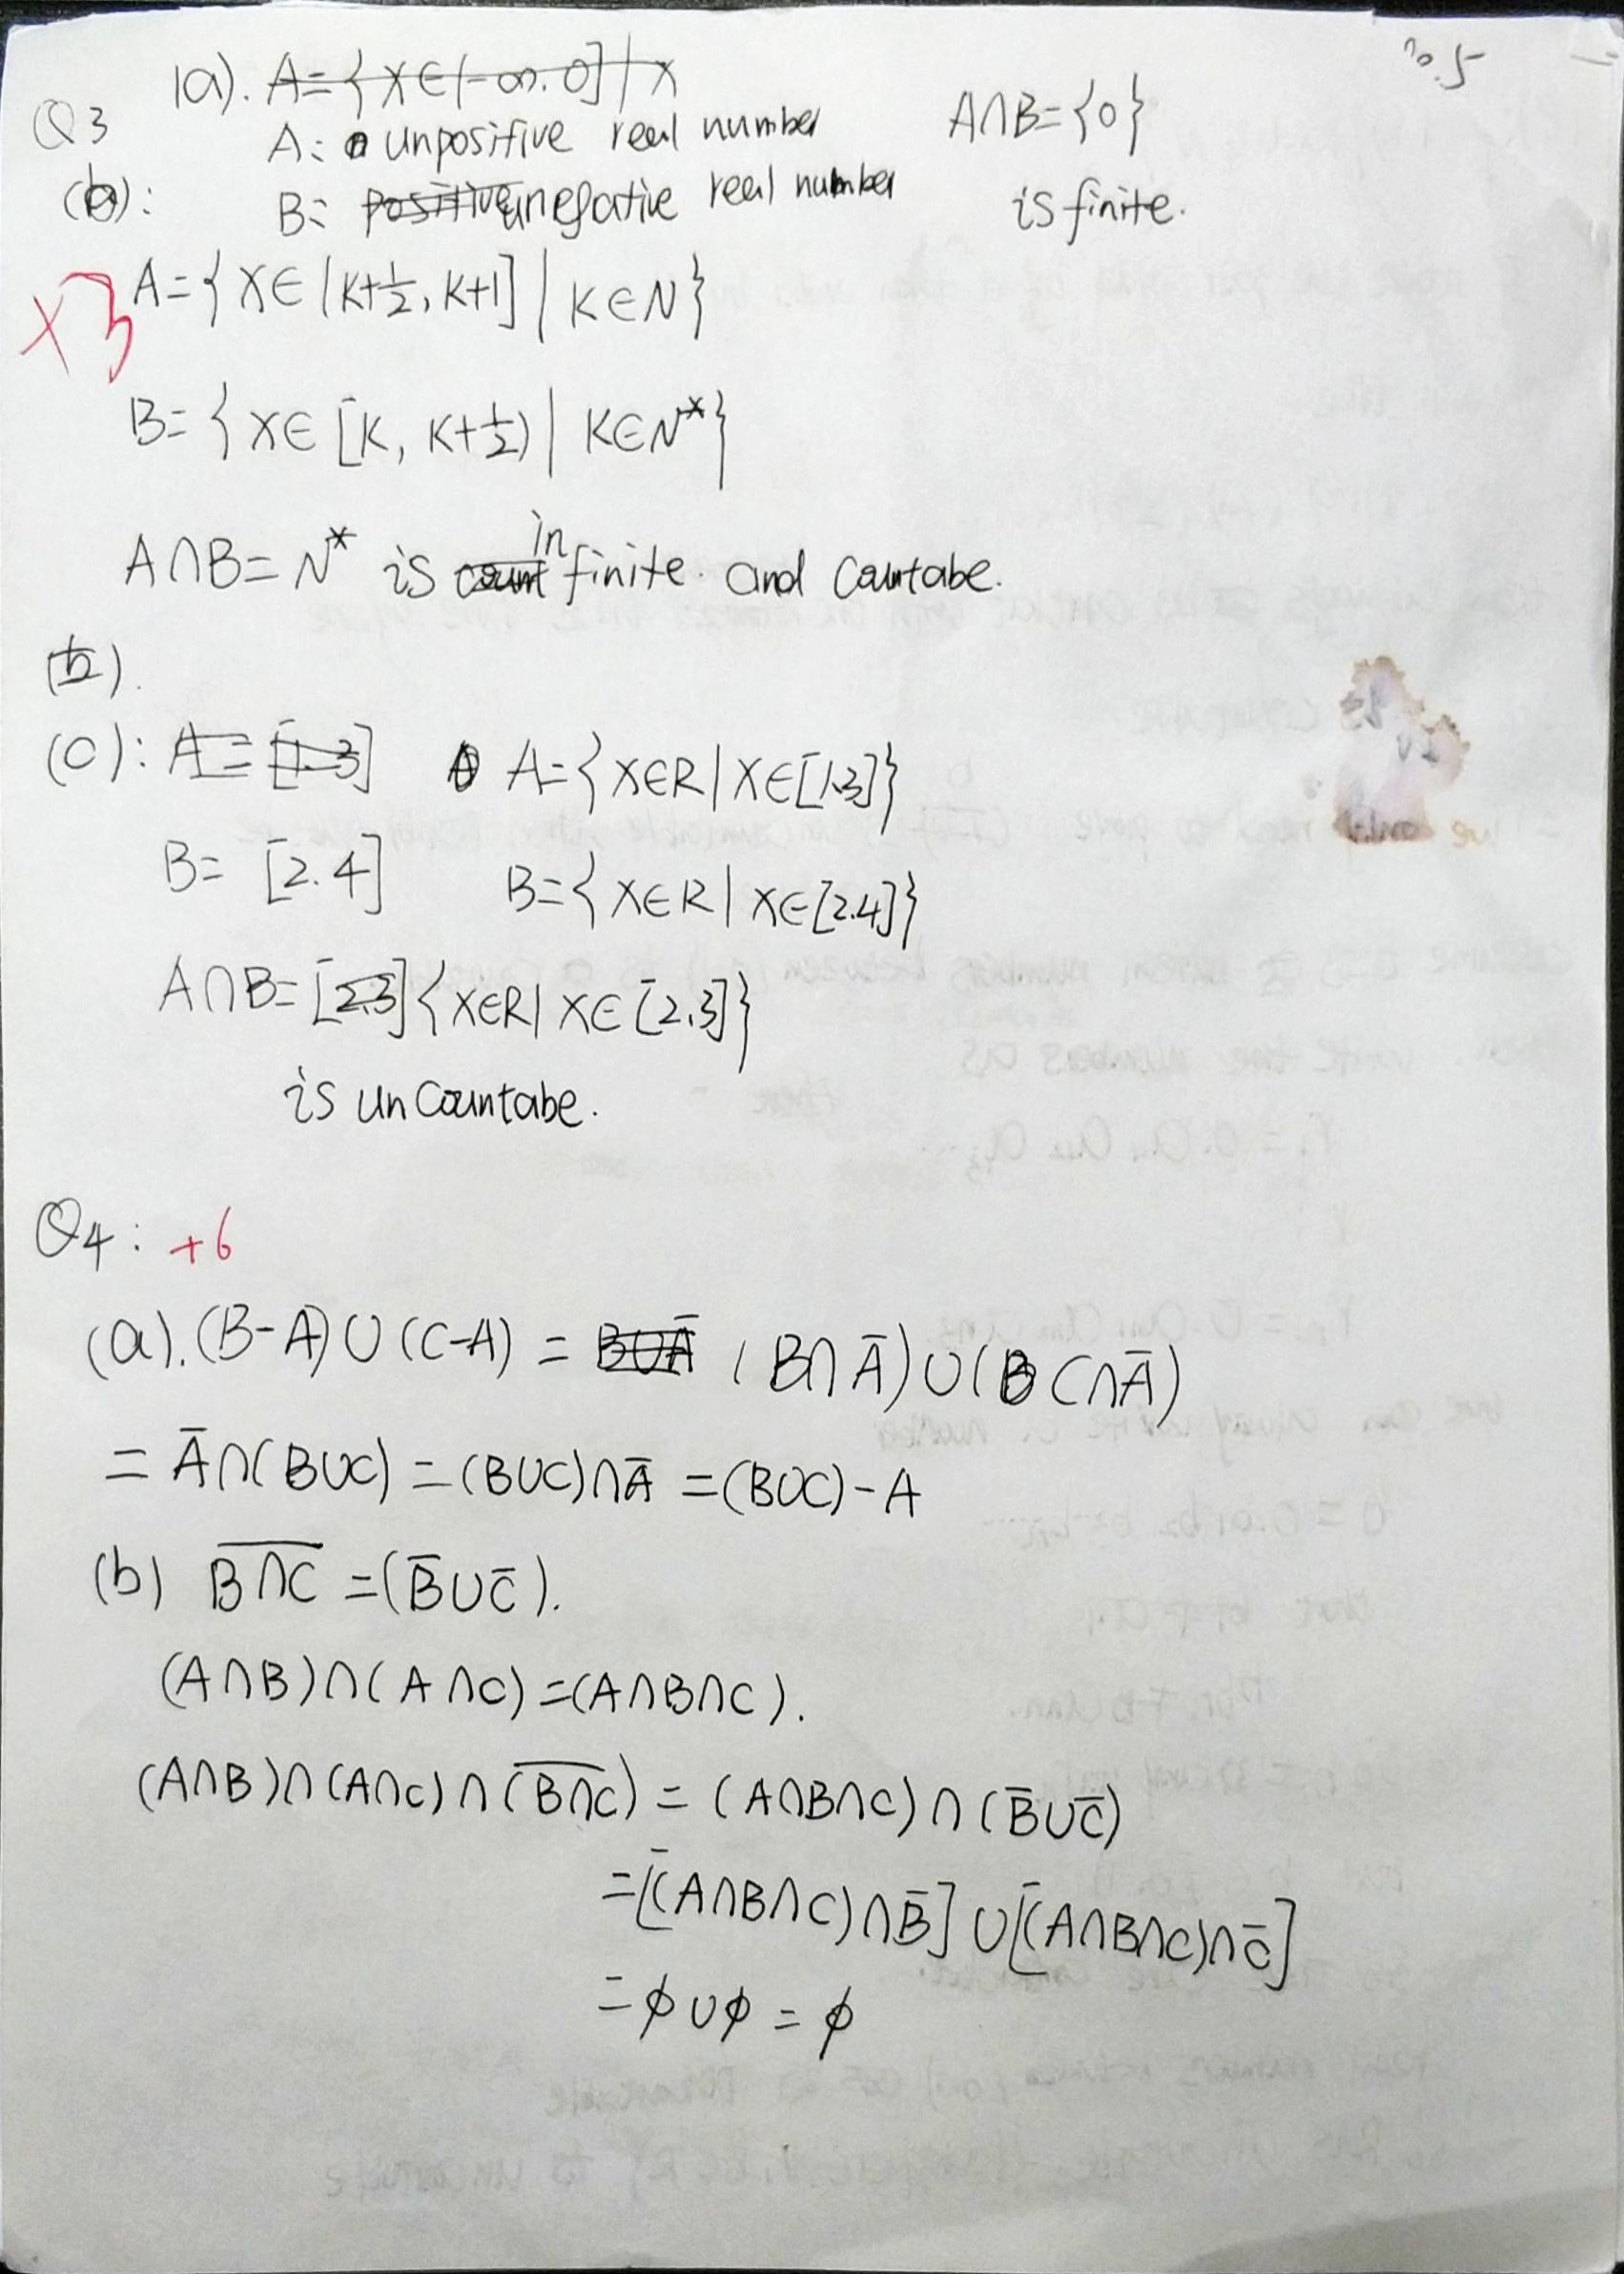 no.5
Q3 (a). A={x∈(-∞.0]|x
A: unpositive real number A∩B={0}
(b): B: positive unnegative real number is finite.
+3 A={x∈(k+1/2, k+1] | k∈N}
B={x∈[k, k+1/2) | k∈N*}
A∩B=N* is count infinite. and countabe.
(b).
(c): A=[1.3] A={x∈R|x∈[1.3]}
B=[2.4] B={x∈R|x∈[2.4]}
A∩B=[2.3]{x∈R|x∈[2.3]}
is uncountabe.
Q4: +6
(a). (B-A)∪(C-A) = B∪Ā (B∩Ā)∪(C∩Ā)
= Ā∩(B∪C) = (B∪C)∩Ā = (B∪C)-A
(b) \overline{B∩C} = (B̄∪C̄).
(A∩B)∩(A∩C)=(A∩B∩C).
(A∩B)∩(A∩C)∩(\overline{B∩C}) = (A∩B∩C)∩(B̄∪C̄)
=[(A∩B∩C)∩B̄]∪[(A∩B∩C)∩C̄]
=ϕ∪ϕ=ϕ